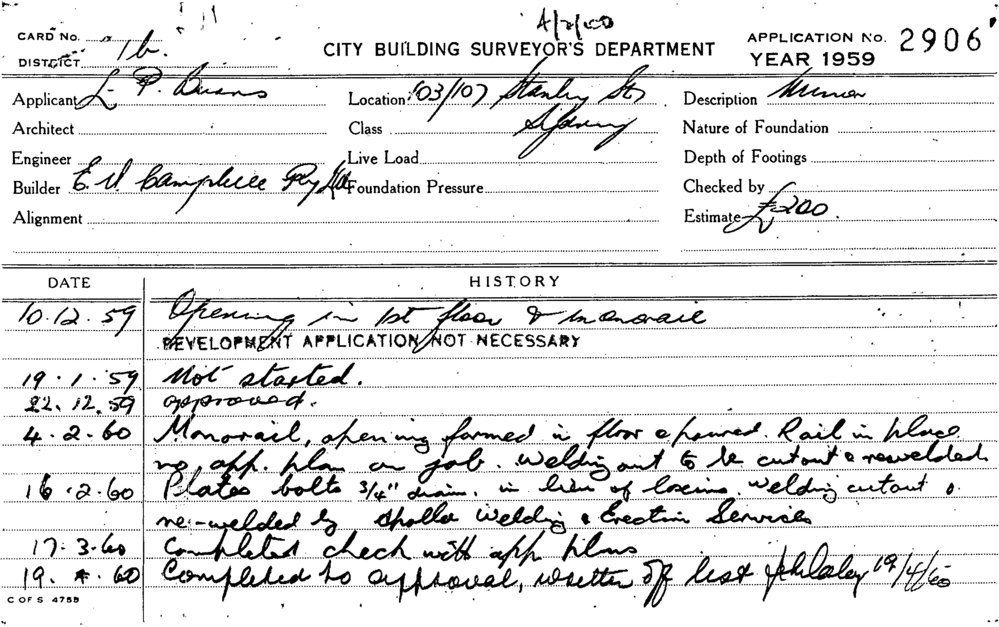 4/2/60
CARD No.
DISTRICT 1b.
CITY BUILDING SURVEYOR'S DEPARTMENT
APPLICATION No. 2906
YEAR 1959
Applicant L. P. Burns
Location 103/107 Stanley St,
Description Minor
Architect
Class Sydney
Nature of Foundation
Engineer
Live Load
Depth of Footings
Builder E. W. Campbell Pty Ltd
Foundation Pressure
Checked by
Alignment
Estimate £200.
DATE
HISTORY
10.12.59 Opening in 1st floor & monorail
DEVELOPMENT APPLICATION NOT NECESSARY
19.1.59 Not started.
22.12.59 approved.
4.2.60 Monorail, opening formed in floor & poured. Rail in place
no app. plan on job. Welding out to be cut out & rewelded.
16.2.60 Plates bolts 3/4" diam. in lieu of welding cut out &
re-welded by Apollo Welding & Erection Services
17.3.60 Completed check with app plans
19.4.60 Completed to approval, written off list 19/4/60
C OF S 4755